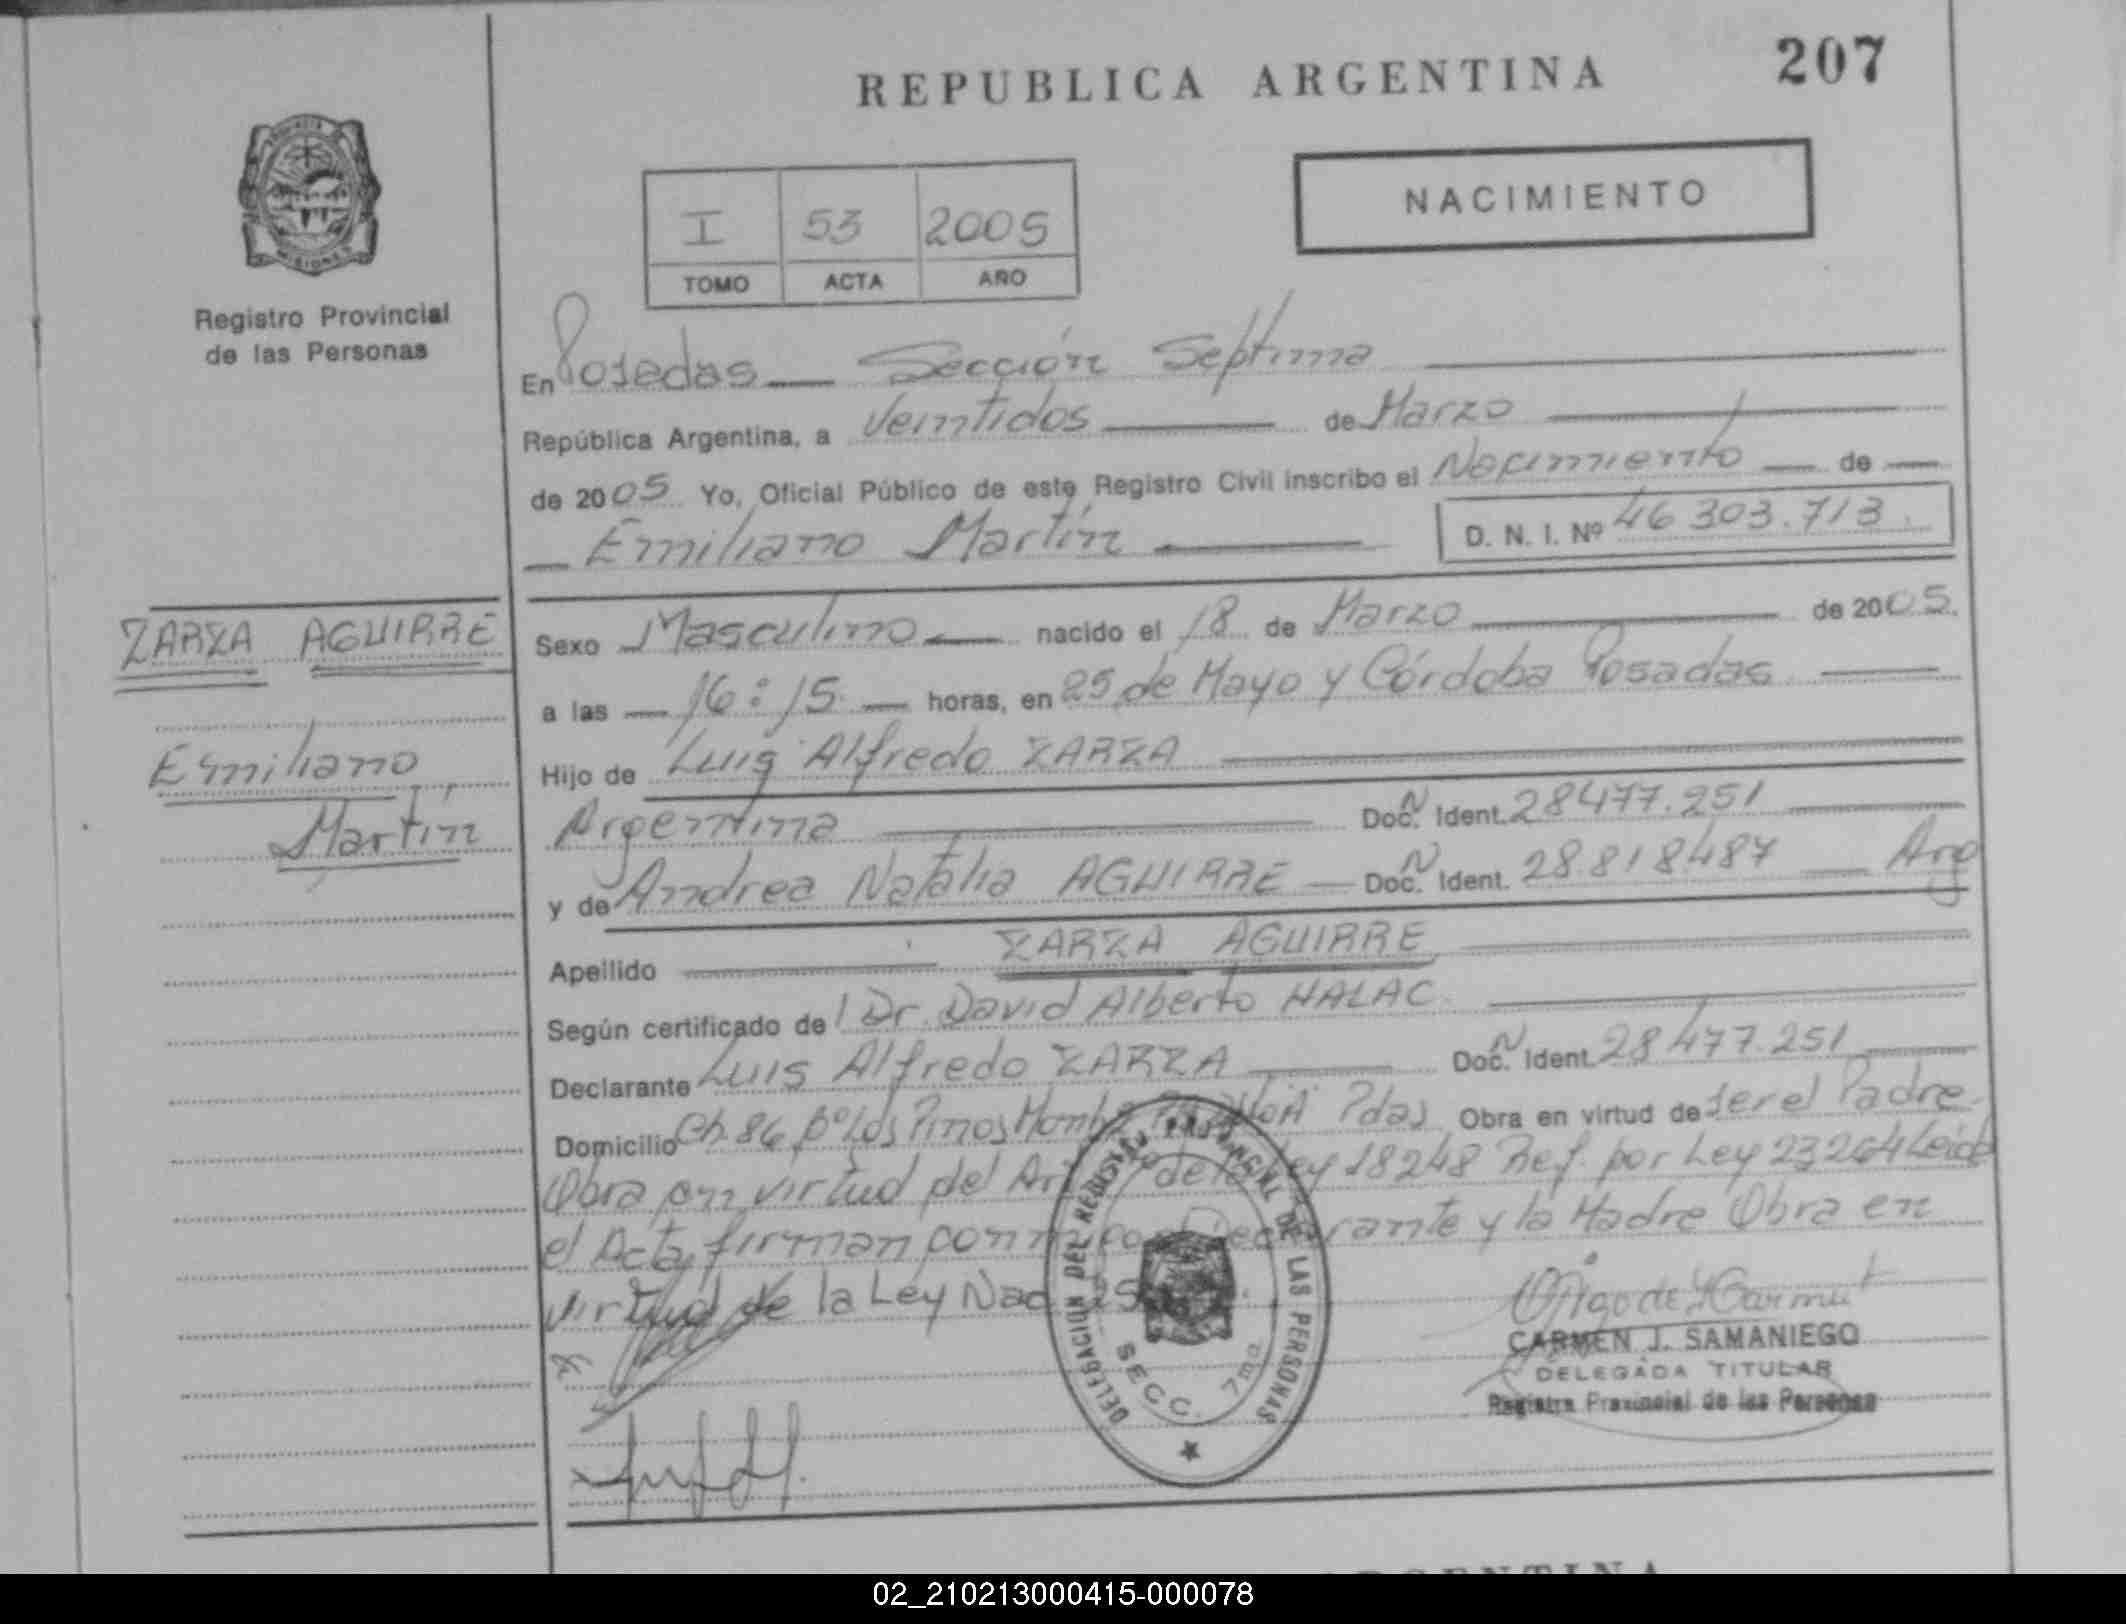 REPUBLICA ARGENTINA 207
NACIMIENTO
I 53 2005
TOMO ACTA AÑO
PROVINCIA DE
MISIONES
Registro Provincial
de las Personas
En Posadas Sección Septima
República Argentina, a Veintidos de Marzo
de 2005 Yo, Oficial Público de este Registro Civil inscribo el Nacimiento de
Emiliano Martín D. N. I. Nº 46 303.713.
ZARZA AGUIRRE
Emiliano
Martín
Sexo Masculino nacido el 18 de Marzo de 2005.
a las 16:15 horas, en 25 de Mayo y Córdoba Posadas
Hijo de Luis Alfredo ZARZA
Argentina Doc. N Ident. 28477.251
y de Andrea Natalia AGUIRRE Doc. N Ident. 28.818.487 Arg
Apellido ZARZA AGUIRRE
Según certificado del Dr. David Alberto HALAC
Declarante Luis Alfredo ZARZA Doc. N Ident. 28477.251
Domicilio Ch. 86 Bº Los Pinos Pdas Obra en virtud de ser el Padre.
Obra en virtud del Art de la Ley 18248 Ref. por Ley 23264 Leida
el Acta, firman conmigo el Declarante y la Madre Obra en
virtud de la Ley Nac 25
DELEGACION DEL REGISTRO PROVINCIAL DE LAS PERSONAS
SECC. 7ma
CARMEN J. SAMANIEGO
DELEGADA TITULAR
Registro Provincial de las Personas
ARGENTINA
02_210213000415-000078